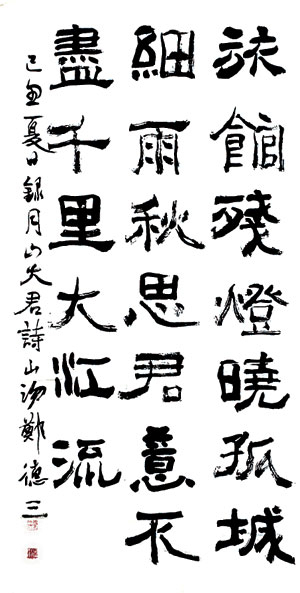 旅館殘燈曉孤城
細雨秋思君意不
盡千里大江流
己丑夏日録月山大君詩山鄭德三